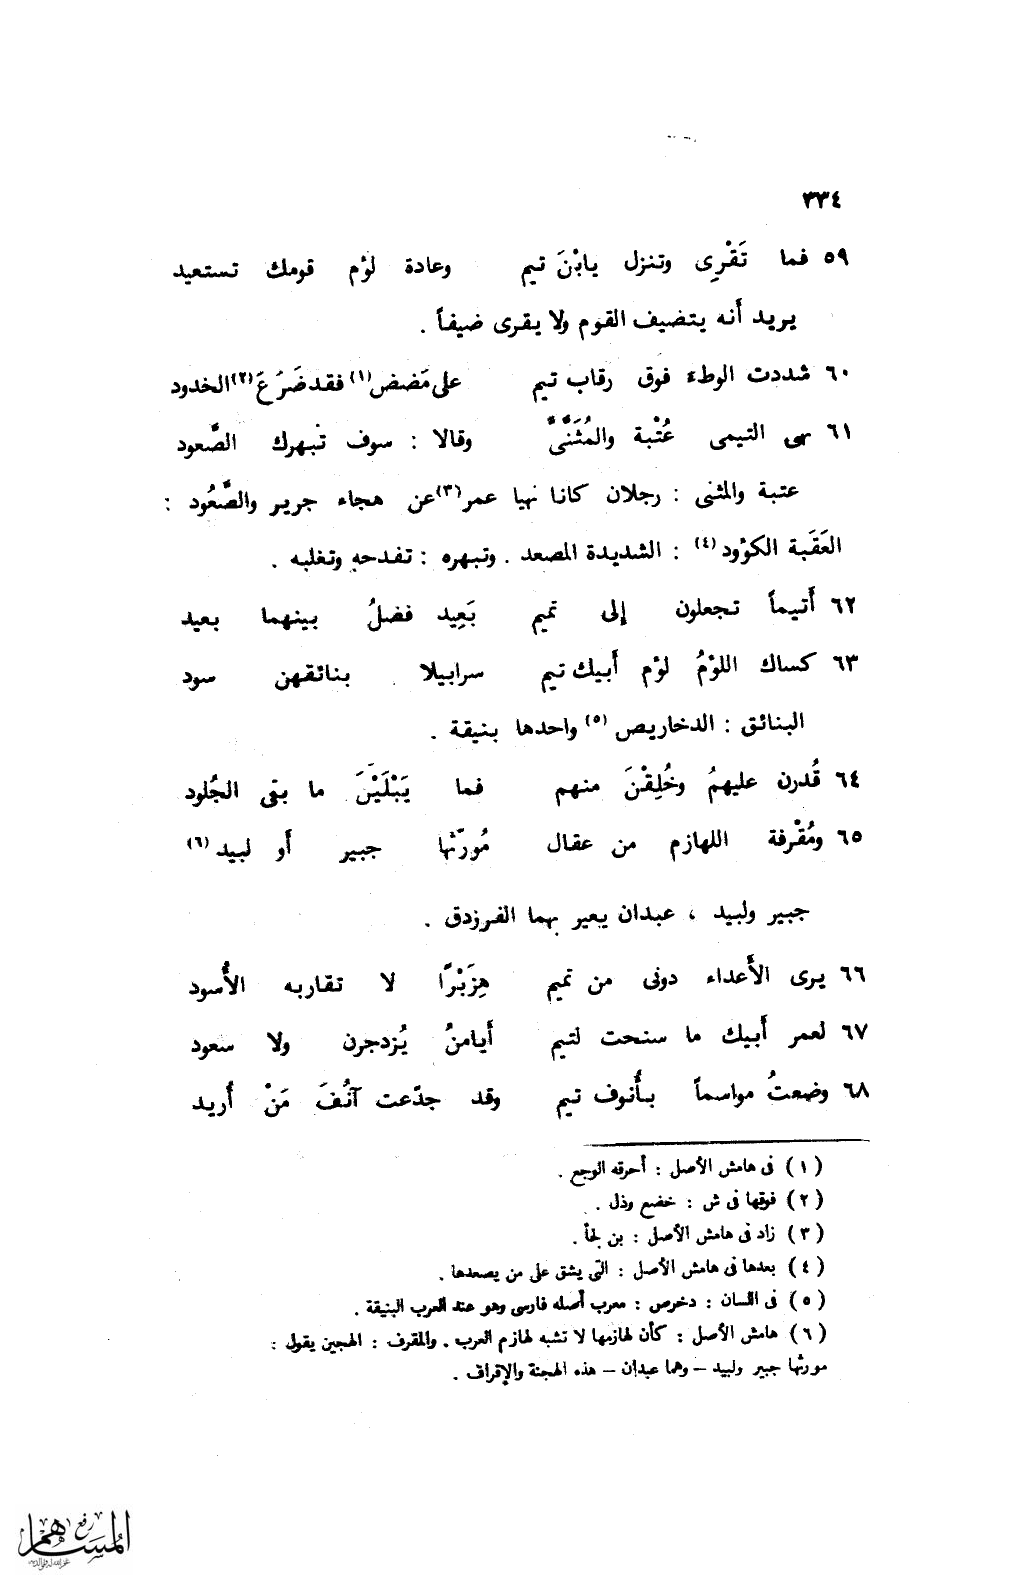 ٣٣٤
٥٩ فما تَقْرِى وتنزل يابْنَ تيم وعادة لؤم قومك تستعيد
يريد أنه يتضيف القوم ولا يقرى ضيفاً .
٦٠ شددت الوطء فوق رقاب تيم على مَضض(١) فقد ضَرَعَ(٢) الخدود
٦١ نهى التيمى عُتْبة والمُثَنَّى وقالا : سوف تبهرك الصَّعود
عتبة والمثنى : رجلان كانا نهيا عمر(٣) عن هجاء جرير والصَّعُود :
العَقَبة الكؤود(٤) : الشديدة المصعد . وتبهره : تفدحه وتغلبه .
٦٢ أَتيماً تجعلون إلى تميم بَعِيد فضلُ بينهما بعيد
٦٣ كساك اللؤمُ لؤم أَبيك تيم سرابيلا بنائقهن سود
البنائق : الدخاريص(٥) واحدها بنيقة .
٦٤ قُدرن عليهمُ وخُلِقْنَ منهم فما يَبْلَيْنَ ما بقى الجُلود
٦٥ ومُقْرفة اللهازم من عقال مُورّثها جبير أَو لبيد(٦)
جبير ولبيد ، عبدان يعير بهما الفرزدق .
٦٦ يرى الأَعداء دونى من تميم هِزَبْرًا لا تقاربه الأُسود
٦٧ لعمر أَبيك ما سنحت لتيم أَيامنُ يُزدجرن ولا سعود
٦٨ وضعتُ مواسماً بأُنوف تيم وقد جدّعت آنُفَ مَنْ أُريد
(١) فى هامش الأصل : أحرقه الوجع .
(٢) فوقها فى ش : خضع وذل .
(٣) زاد فى هامش الأصل : بن لجأ .
(٤) بعدها فى هامش الأصل : التى يشق على من يصعدها .
(٥) فى اللسان : دخرص : معرب أصله فارسى وهو عند العرب البنيقة .
(٦) هامش الأصل : كأن لهازمها لا تشبه لهازم العرب . والمقرف : الهجين يقول :
مورثها جبير ولبيد – وهما عبدان – هذه الهجنة والإقراف .
رفع المساهم